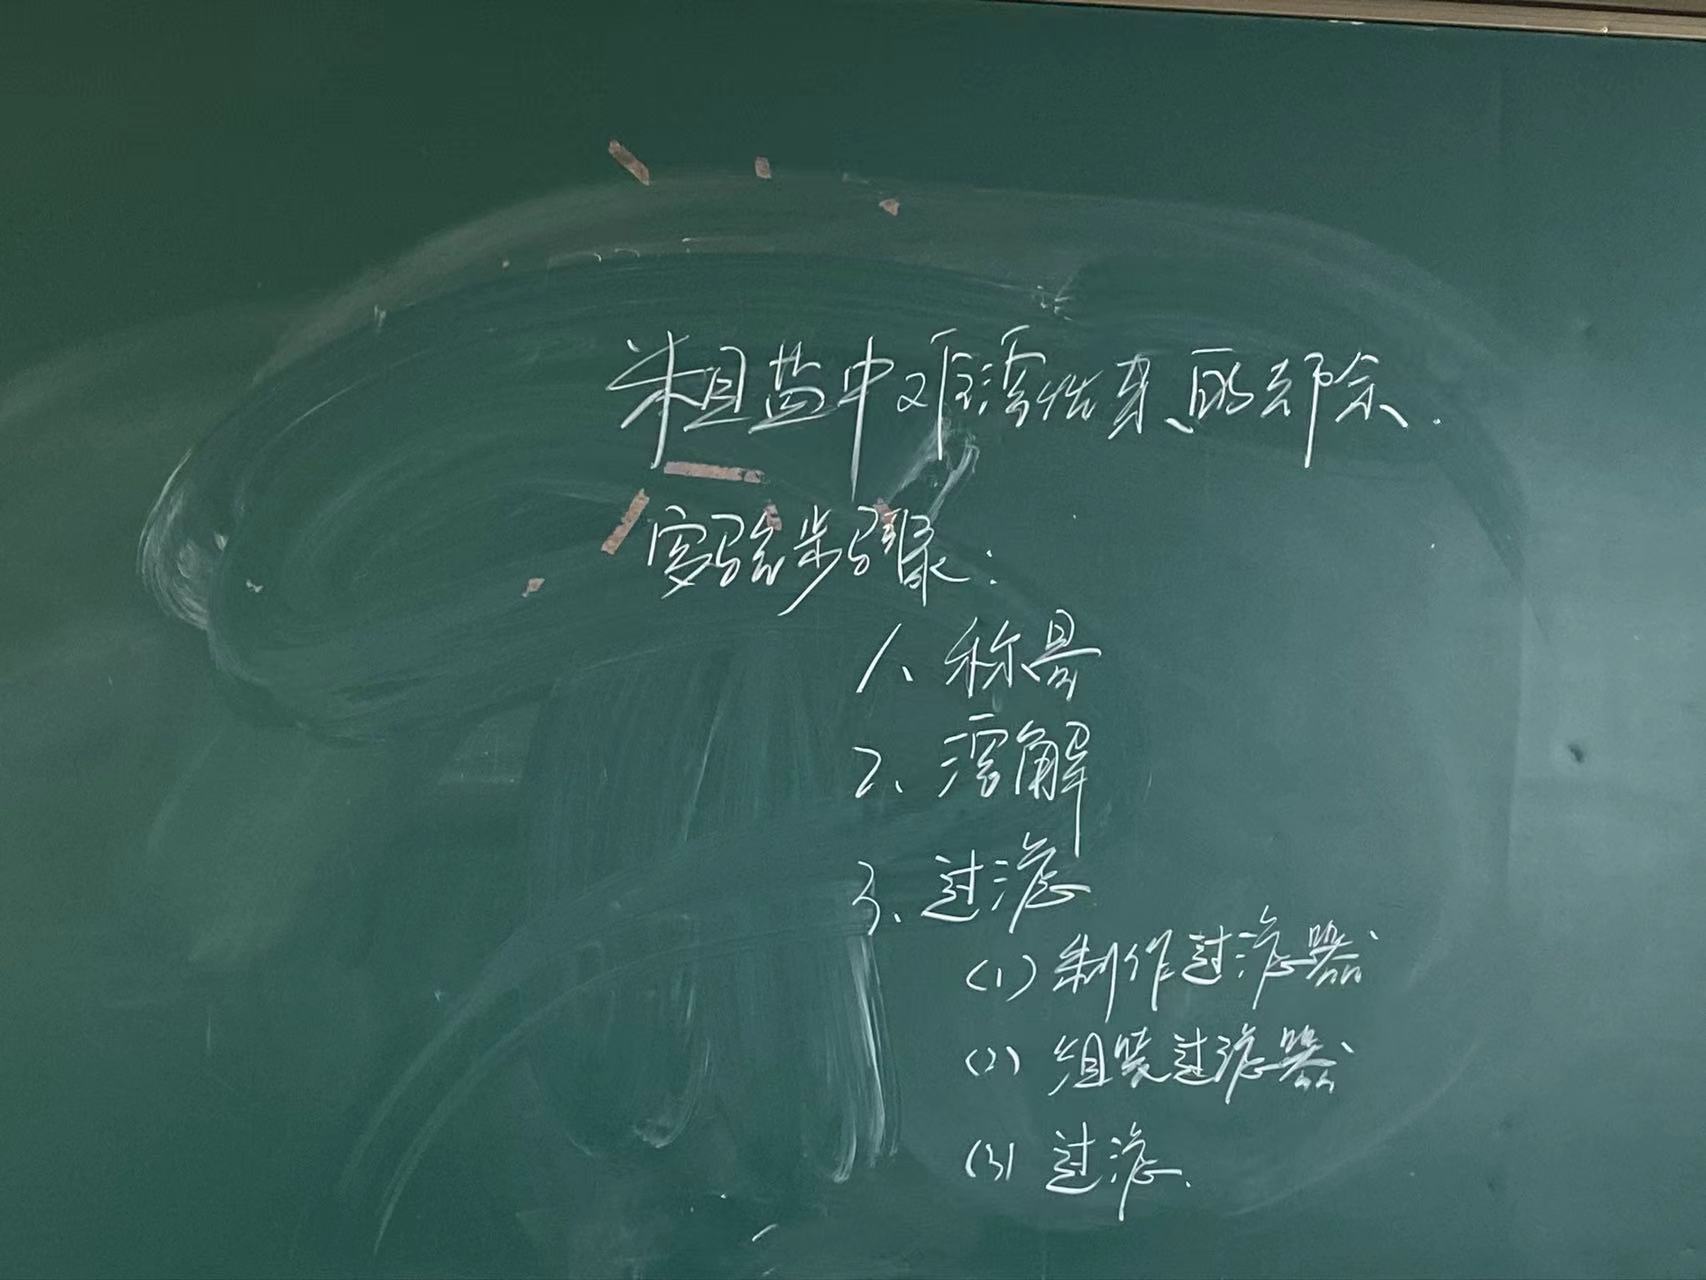 粗盐中难溶性杂质的去除.
实验步骤:
1、称量
2、溶解
3、过滤
(1) 制作过滤器
(2) 组装过滤器
(3) 过滤.